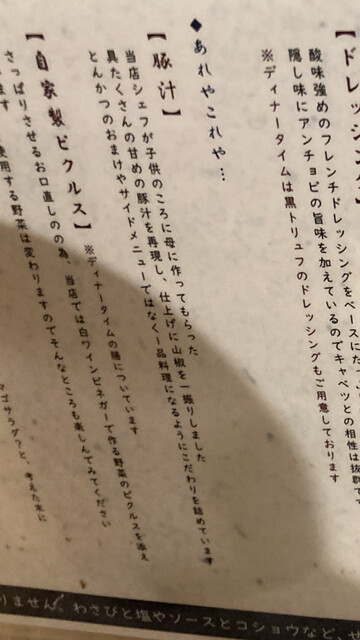 【ドレッシング】
酸味強めのフレンチドレッシングをベースにたっ
隠し味にアンチョビの旨味を加えているのでキャベツとの相性は抜群
※ディナータイムは黒トリュフのドレッシングもご用意しております
◆あれやこれや…
【豚汁】
当店シェフが子供のころに母に作ってもらった
具たくさんの甘めの豚汁を再現し、仕上げに山椒を一振りしました
とんかつのおまけやサイドメニューではなく一品料理になるようにこだわりを詰めています
※ディナータイムの膳についています
【自家製ピクルス】
さっぱりさせるお口直しのの為、当店では白ワインビネガーで作る野菜のピクルスを添え
使用する野菜は変わりますのでそんなところも楽しんでみてください
マゴサラダ?と、考えた末に
りません。わさびと塩やソースとコショウなど、